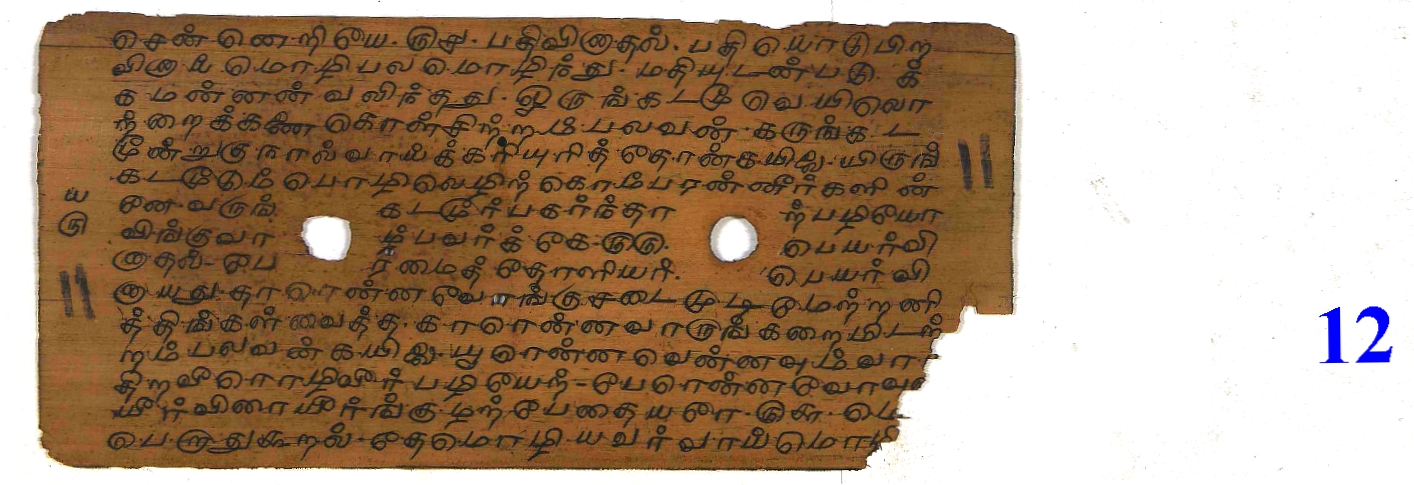 சென் னெறியே. ௫௪. பதிவினாதல். பதி யொடுபிற
வினாய மொழிபல மொழிந்து. மதியுடன்படு. க்
க மன்னன் வலிந்தது. இருங்கடலே வெயிலொ
ன்றைக்கணை கொண்சிற்றம்பலவன் கருங்கட
மூன்றுகுநால்வாய்க்கரியுரித் தோன்கயிலை யிருங்
பொழிலெழிற் கொம்பரன்னீர்களின்
னே வருங். கடமூர்பகர்ந்தா ற்பழியோ
விங்குவா ழ்பவர்க் கே. ௫௫. பெயர்வி
னாதல்- பே ரமைத் தோளியர். பெயர் வி
னாயது. தா ரென்ன வோங்குசடை முடி மேற்றனி
த்திங்கள் வைத்த. காரென்னவாருங்கறைமிடற்
றம்பலவன்கயிலை யூரென்ன வென்னவும் வா
திறவீரொழிவீர்பழியேற்-பேரென்னவோவு
யீர்விரையீர்ங்குழற்பேதையரே. ௫௬.
தேமொழி யவர் வாய்மொ
ய
௫
12